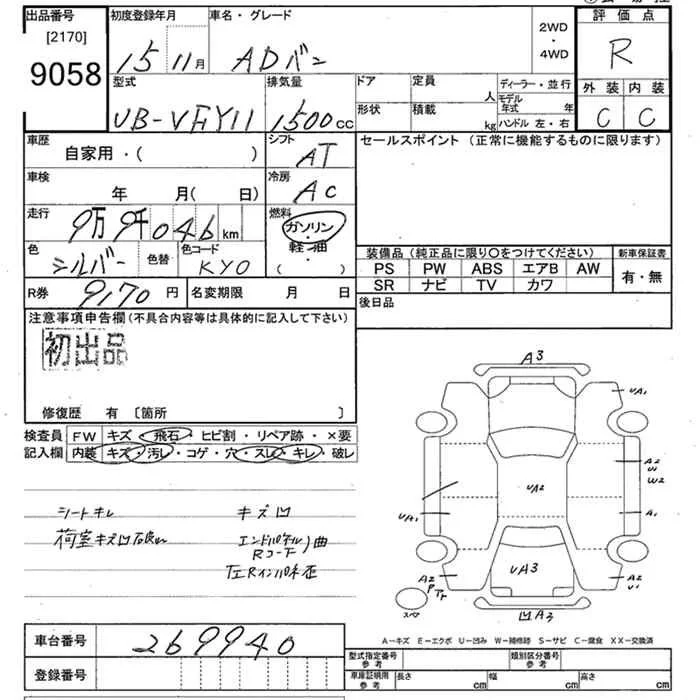 出品番号
[2170]
9058
初度登録年月
15 11月
車名・グレード
ADバン
2WD
・
4WD
評価点
R
外装 内装
C C
型式
UB-VFY11
排気量
1500cc
ドア
形状
定員
人
積載
kg
ディーラー・並行
モデル
年式 年
ハンドル 左・右
車歴
自家用・( )
シフト
AT
セールスポイント (正常に機能するものに限ります)
車検
年 月( 日)
冷房
AC
走行
9万9千046km
燃料
ガソリン
・
軽油
( ・ )
色
シルバー
色替
色コード
KY0
装備品 (純正品に限り〇をつけてください)
新車保証書
PS PW ABS エアB AW
SR ナビ TV カワ
有・無
R券 9,170 円
名変期限 月 日
後日品
注意事項申告欄 (不具合内容等は具体的に記入して下さい)
初出品
修復歴 有 〔箇所 〕
検査員
記入欄
FW キズ・飛石・ヒビ割・リペア跡・×要
内装 キズ・汚レ・コゲ・穴・スレ・キレ・破レ
シートキレ
キズ凹
エンドパネル
Rコーナー
曲
A3
UA1
A2
U1
W2
UA2
UA1
A1
UA3
A2
P
A2
U1
スペア
凹A3
A-キズ E-エクボ U-凹み W-補修跡 S-サビ C-腐食 XX-交換済
車台番号
269940
登録番号
型式指定番号
参考
類別区分番号
参考
車庫証明用
参考
長さ cm
幅 cm
高さ cm